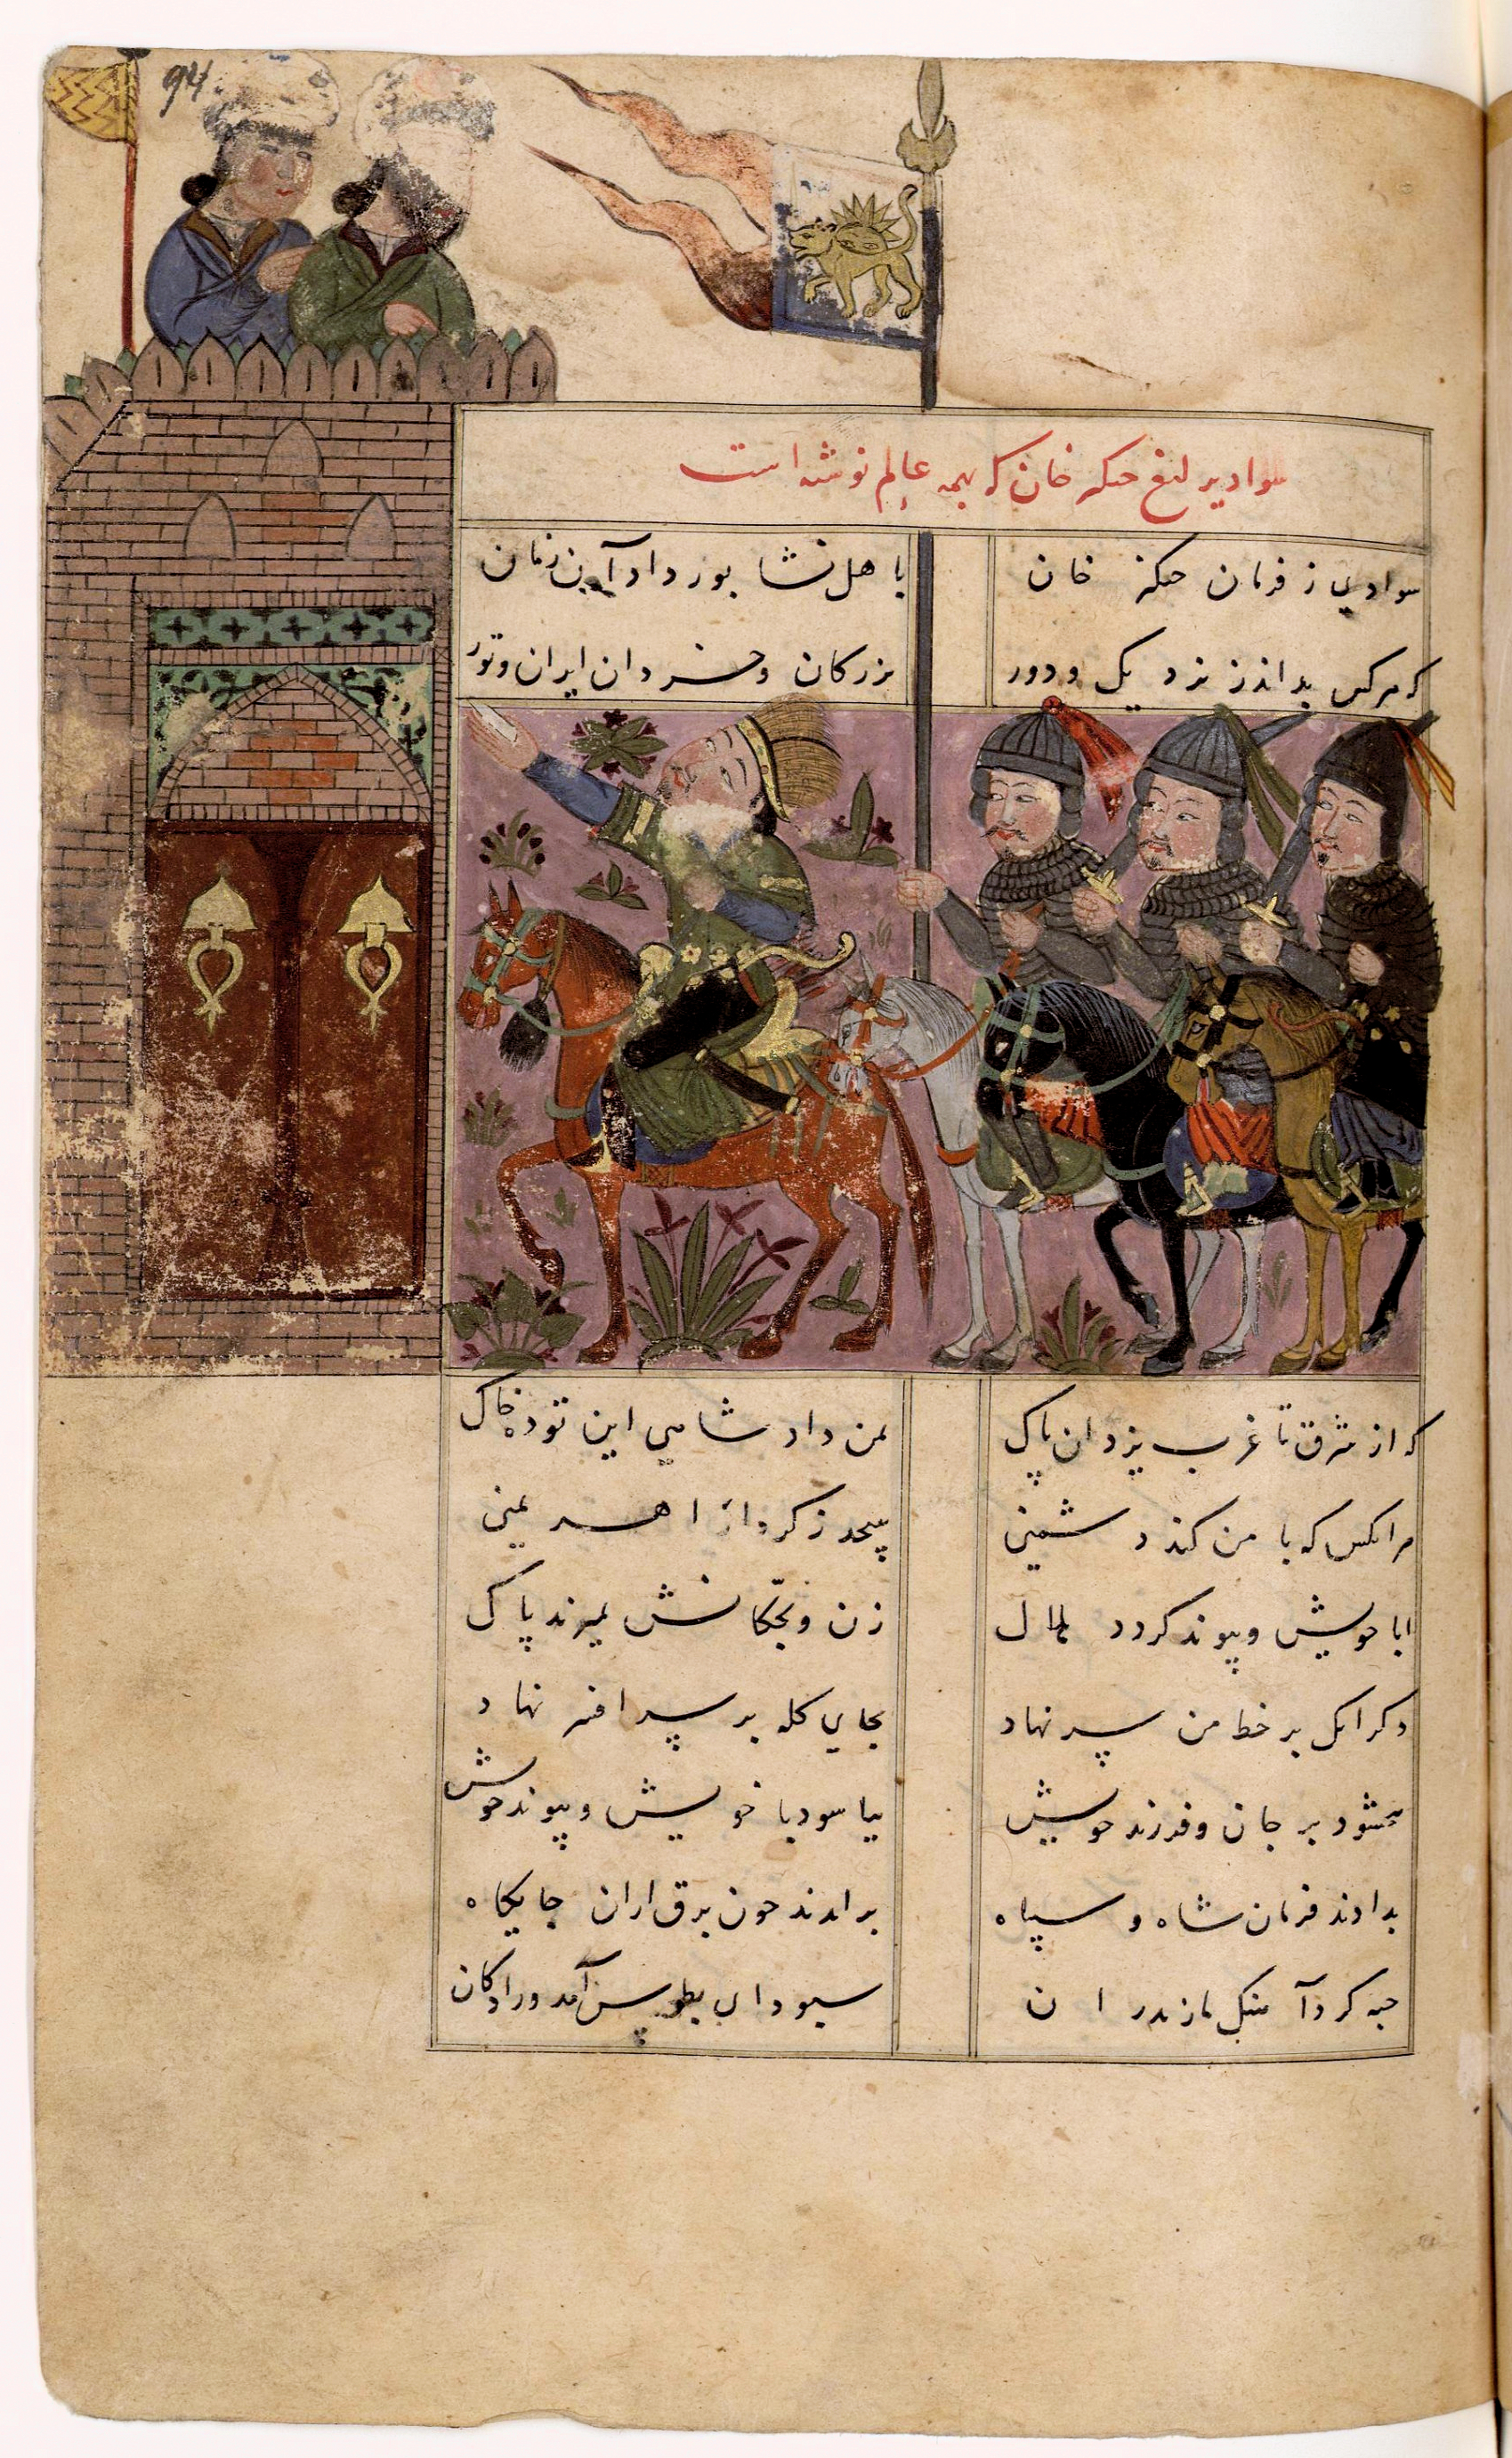 94
سواد یرلیغ جنکز خان که بهمه عالم نوشته است
سوادی ز فرمان جنکز خان
با هل نشابور داد آن زمان
که هرکس بداند ز نزدیک و دور
بزرکان و خسردان ایران و تور
که از شرق تا غرب یزدان پاک
بمن داد شاهی این توده خاک
هر انکس که با من کند دشمنی
پیچد ز کردار اهریمنی
ابا خویش و پیوند کردد
زن و بچکانش بمیرند پاک
دکر انک بر خط من سر نهاد
بجای کله بر سر افسر نهاد
بر جان و فرزند خویش
بیاسود با خویش و پیوند خویش
بدادند فرمان شاه و سپاه
براندند چون برق ازان جایکاه
جبه کرد آهنک مازندران
بطوس آمد و رادکان